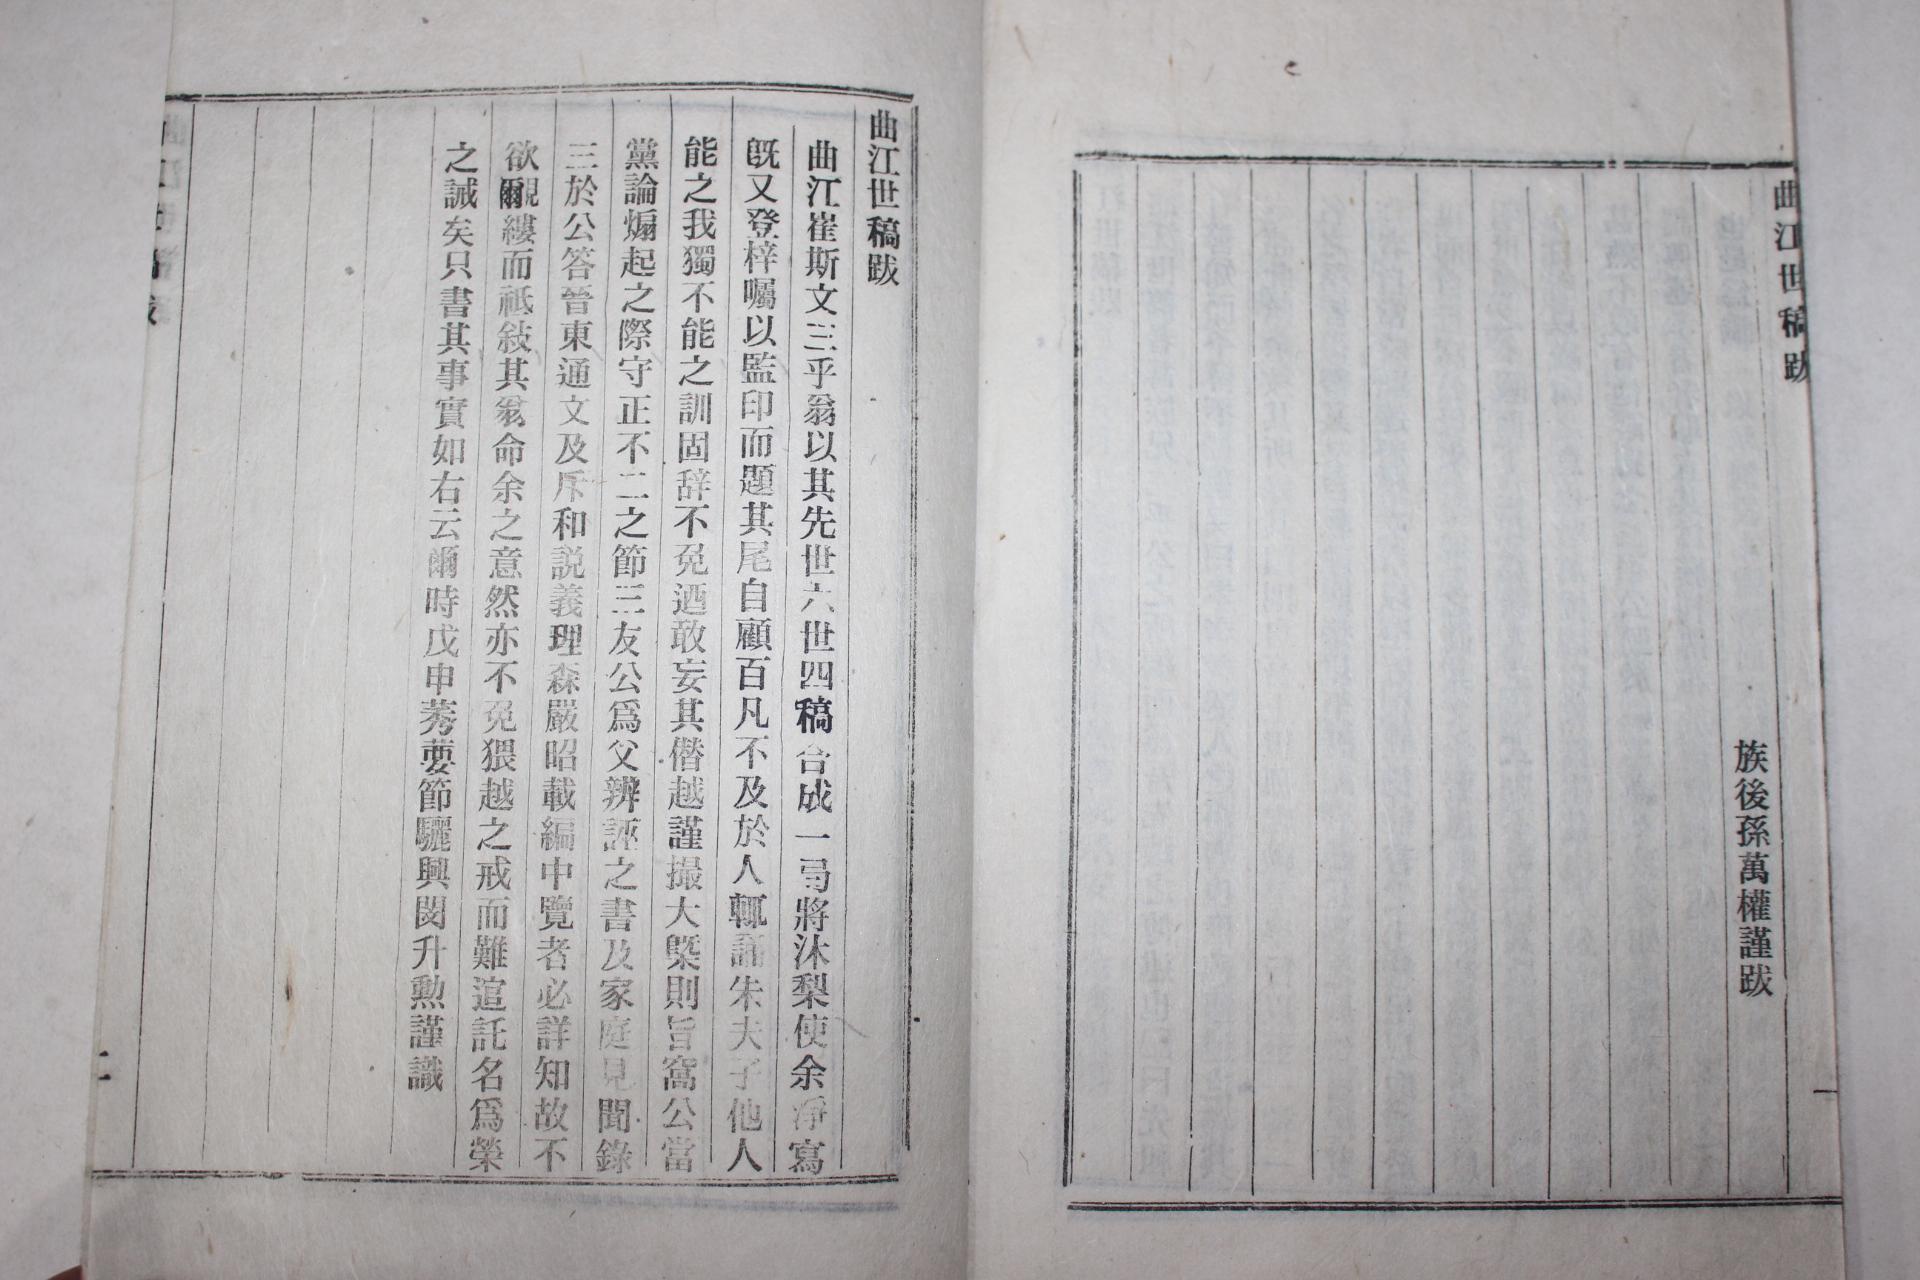 曲江世稿跋
族後孫萬權謹跋
曲江世稿跋
曲江崔斯文三乎翁以其先世六世四稿合成一弓將沐梨使余淨寫
旣又登梓囑以監印而題其尾自顧百凡不及於人輒誦朱夫子他人
能之我獨不能之訓固辞不免迺敢妄其僭越謹撮大槩則旨窩公當
黨論煽起之際守正不二之節三友公爲父辨誣之書及家庭見聞錄
三於公答晉東通文及斥和說義理森嚴昭載編中覽者必詳知故不
欲覼縷而祗敍其翁命余之意然亦不免猥越之戒而難逭託名爲榮
之誠矣只書其事實如右云爾時戊申莠葽節驪興閔升勳謹識
二